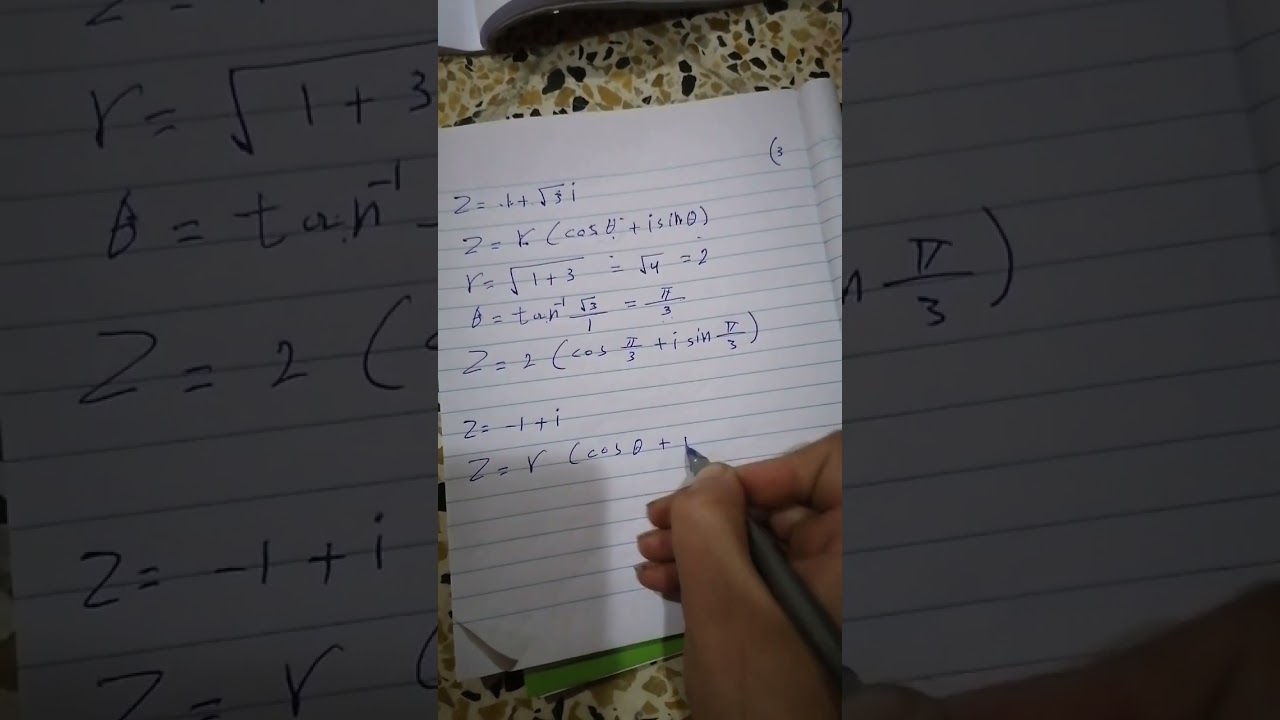 (3
z = 1 + √3 i
z = r (cosθ + i sinθ)
r = √(1+3) = √4 = 2
θ = tan⁻¹ √3/1 = π/3
z = 2 (cos π/3 + i sin π/3)
z = -1 + i
z = r (cosθ + i